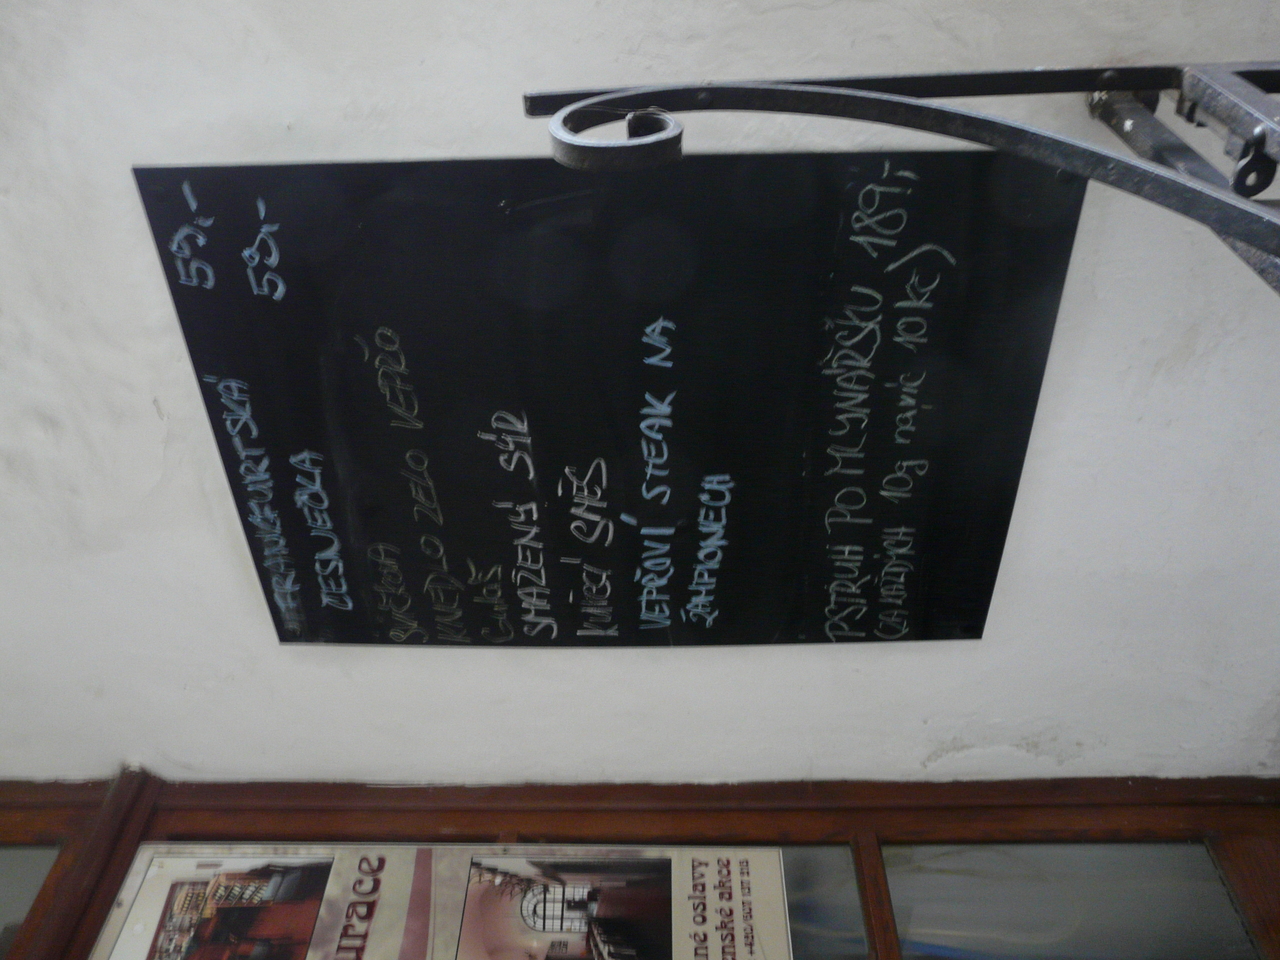 FRANKFURTSKÁ 59,-
ČESNEČKA 59,-
SVÍČKOVÁ
KNEDLO ZELO VEPŘO
GULÁŠ
SMAŽENÝ SÝR
KUŘECÍ SMĚS
VEPŘOVÍ STEAK NA
ŽAMPIONECH
PSTRUH PO MLYNÁŘSKU 189,-
(ZA KAŽDÝCH 10g navíc 10 kč)
urace
né oslavy
nské akce